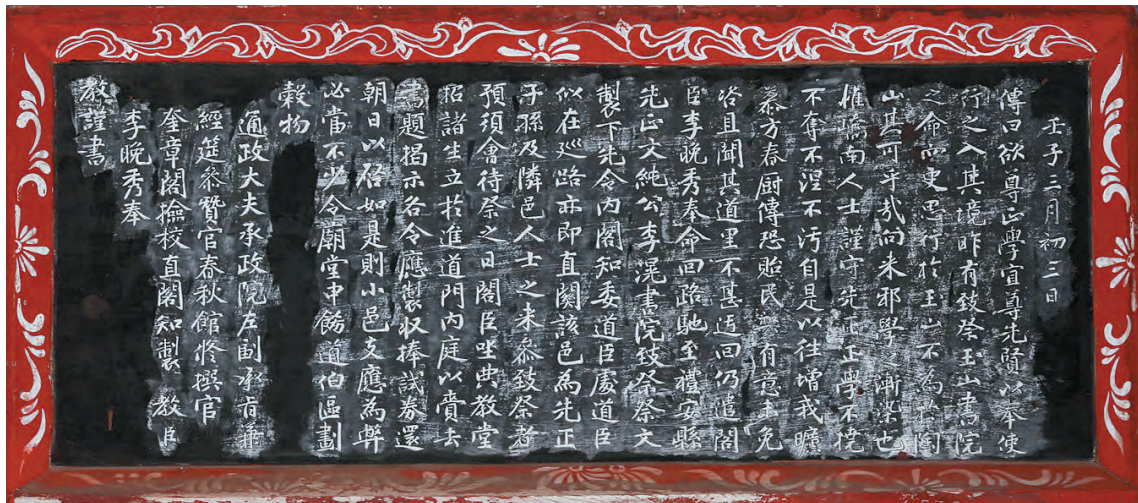 壬子三月初三日
傳曰欲尊正學宜尊先賢以奉使
行之入其境昨有致祭玉山書院
之命而更思行於玉山不為於陶
山其可乎哉向来邪學之漸染也
惟嶠南人士謹守先正正學不撓
不奪不涅不汚自是以往增我曠
慕方春厨傳恐貽民 有意未免
咨且聞其道里不甚迃回仍遣閣
臣李晚秀奉命回路馳至禮安縣
先正文純公李滉書院致祭祭文
製下先令內閣知委道臣處道臣
似在廵路亦即直關該邑為先正
子孫及隣邑人士之来叅致祭者
預須會待祭之日閣臣坐典教堂
招諸生立於進道門內庭以賷去
書題揭示各令應製収捧試券還
朝日以啓如是則小邑支應為弊
必當不少令廟堂申飭道伯區劃
穀物
通政大夫承政院左副承旨兼
經筵叅賛官春秋館修撰官
奎章閣檢校直閣知製 教臣
李晚秀奉
教謹書